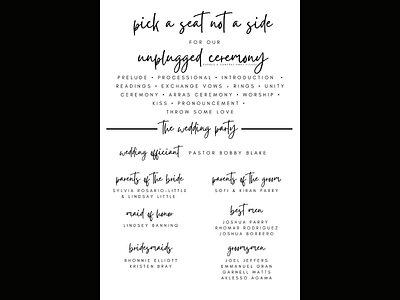 pick a seat not a side
FOR OUR
unplugged ceremony
PRELUDE • PROCESSIONAL • INTRODUCTION •
READINGS • EXCHANGE VOWS • RINGS • UNITY
CEREMONY • ARRAS CEREMONY • WORSHIP •
KISS • PRONOUNCEMENT •
THROW SOME LOVE
the wedding party
wedding officiant PASTOR BOBBY BLAKE
parents of the bride
SYLVIA ROSARIO-LITTLE
& LINDSAY LITTLE
parents of the groom
SOFI & KIRAN PARRY
maid of honor
LINDSEY BANNING
best men
JOSHUA PARRY
RHOMAR RODRIGUEZ
JOSHUA BORRERO
bridesmaids
RHONNIE ELLIOTT
KRISTEN BRAY
groomsmen
JOEL JEFFERS
EMMANUEL GRAN
GARNELL WATTS
AKLESSO AGAMA